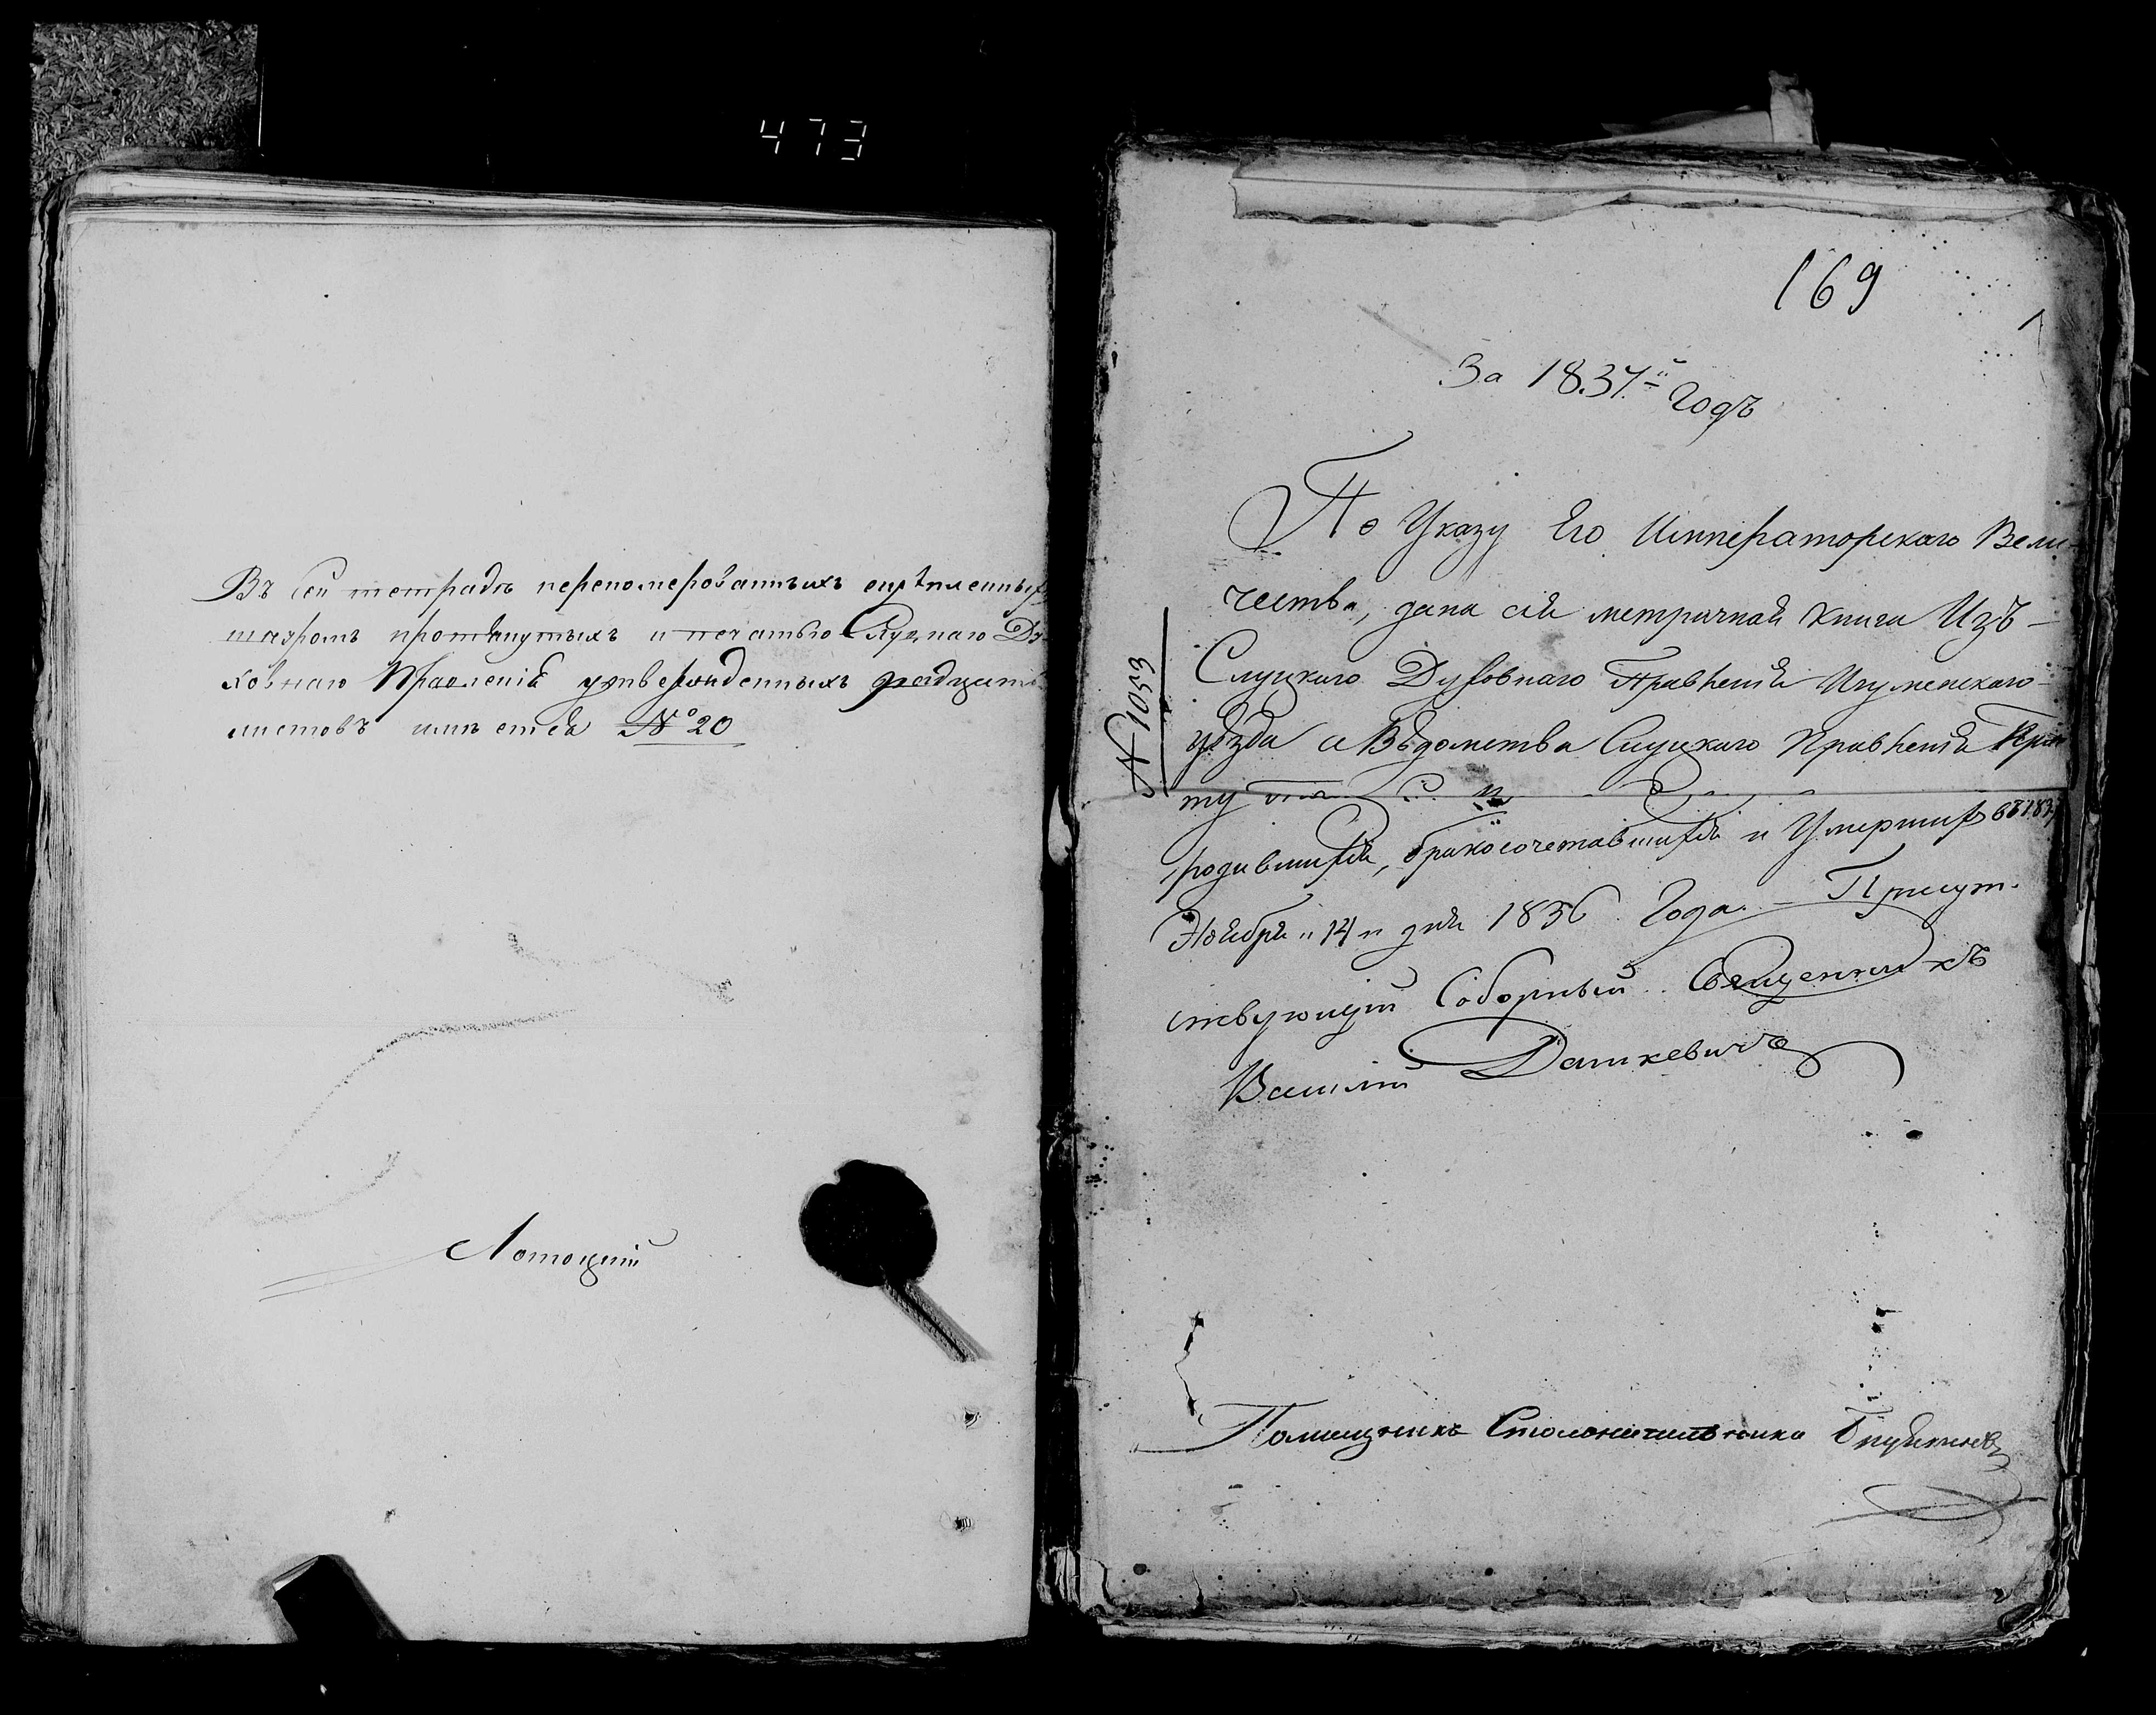 473
Въ сей тетрадѣ перепомерованныхъ скрѣпленныхъ
шнуромъ протянутыхъ и печатью Слуцкаго Ду
ховнаго Правленія утвержденныхъ двадцать
листовъ имѣется №20
Лотоцкій
169
1
За 1837й Годъ
По Указу Его Императорскаго Вели-
чества, дана сія метричная книга Изъ
Слуцкаго Духовнаго Правленія Игуменскаго
уѣзда а Вѣдомства Слуцкаго Правленія
родившихся, бракосочетавшихся и Умершихъ въ 1837
Ноября "14" дня 1836 Года. Присут-
ствующій Соборный Священникъ
Василій Дашкевичъ
№ 1053
Помощникъ Столоначальника